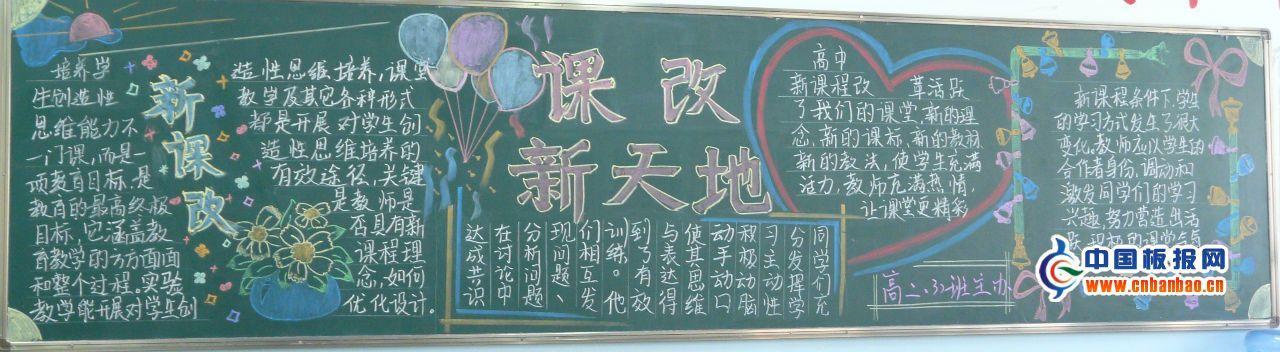 培养学
生创造性
思维能力不
一门课,而是一
项教育目标,是
教育的最高终极
目标,它涵高教
育教学的方方面面
和整个过程。实验
教学能开展对学生创
新课改
造性思维培养,课堂
教学及其它各种形式
都是开展对学生创
造性思维培养的
有效途径,关键
是教师是
否具有新
课程理
念,如何
优化设计。
课改
新天地
同学们充
分发挥学
习主动性
积极动脑
动手动口
使其思维
与表达得
到了有效
训练。他
们相互发
现问题、
分析问题
在讨论中
达成共识
高中
新课程改 革活跃
了我们的课堂,新的理
念,新的课标,新的教材,
新的教法,使学生充满
活力,教师充满热情,
让课堂更精彩
高二.3班主办
新课程条件下,学生
的学习方式发生了很大
变化,教师应以学生的
合作者身份,调动和
激发同学们的学习
兴趣,努力营造生活
中国板报网
www.cnbanbao.cn